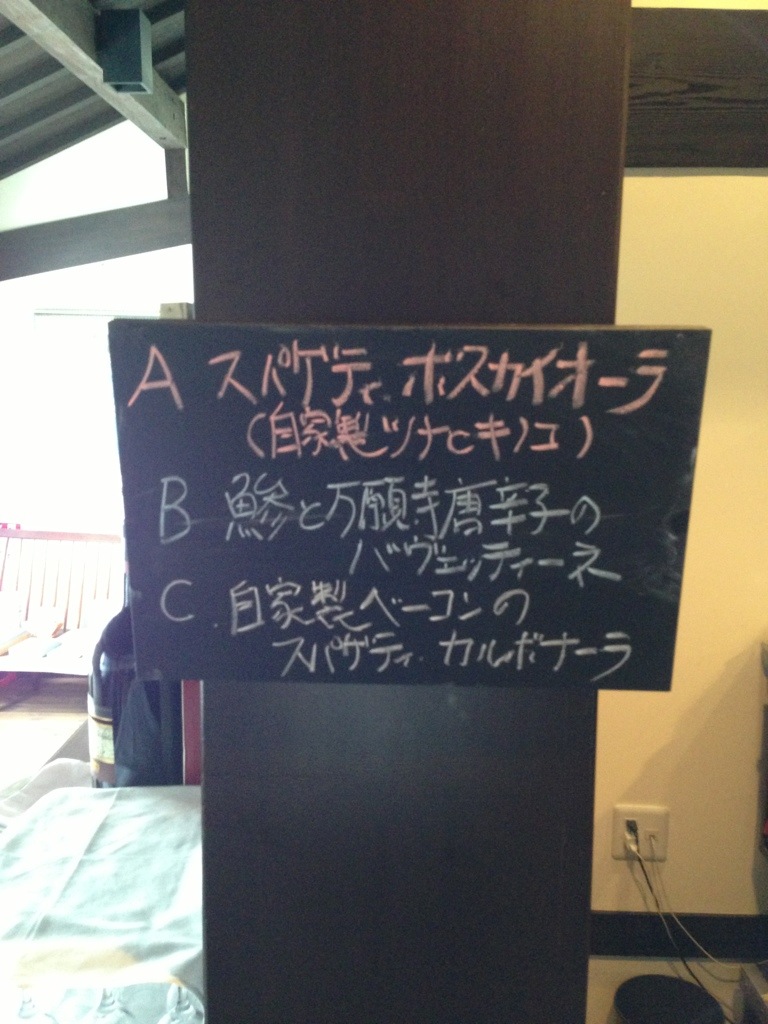 A スパゲティ ボスカイオーラ
(自家製ツナとキノコ)
B 鯵と万願寺唐辛子の
バヴェッティーネ
C 自家製ベーコンの
スパゲティ カルボナーラ